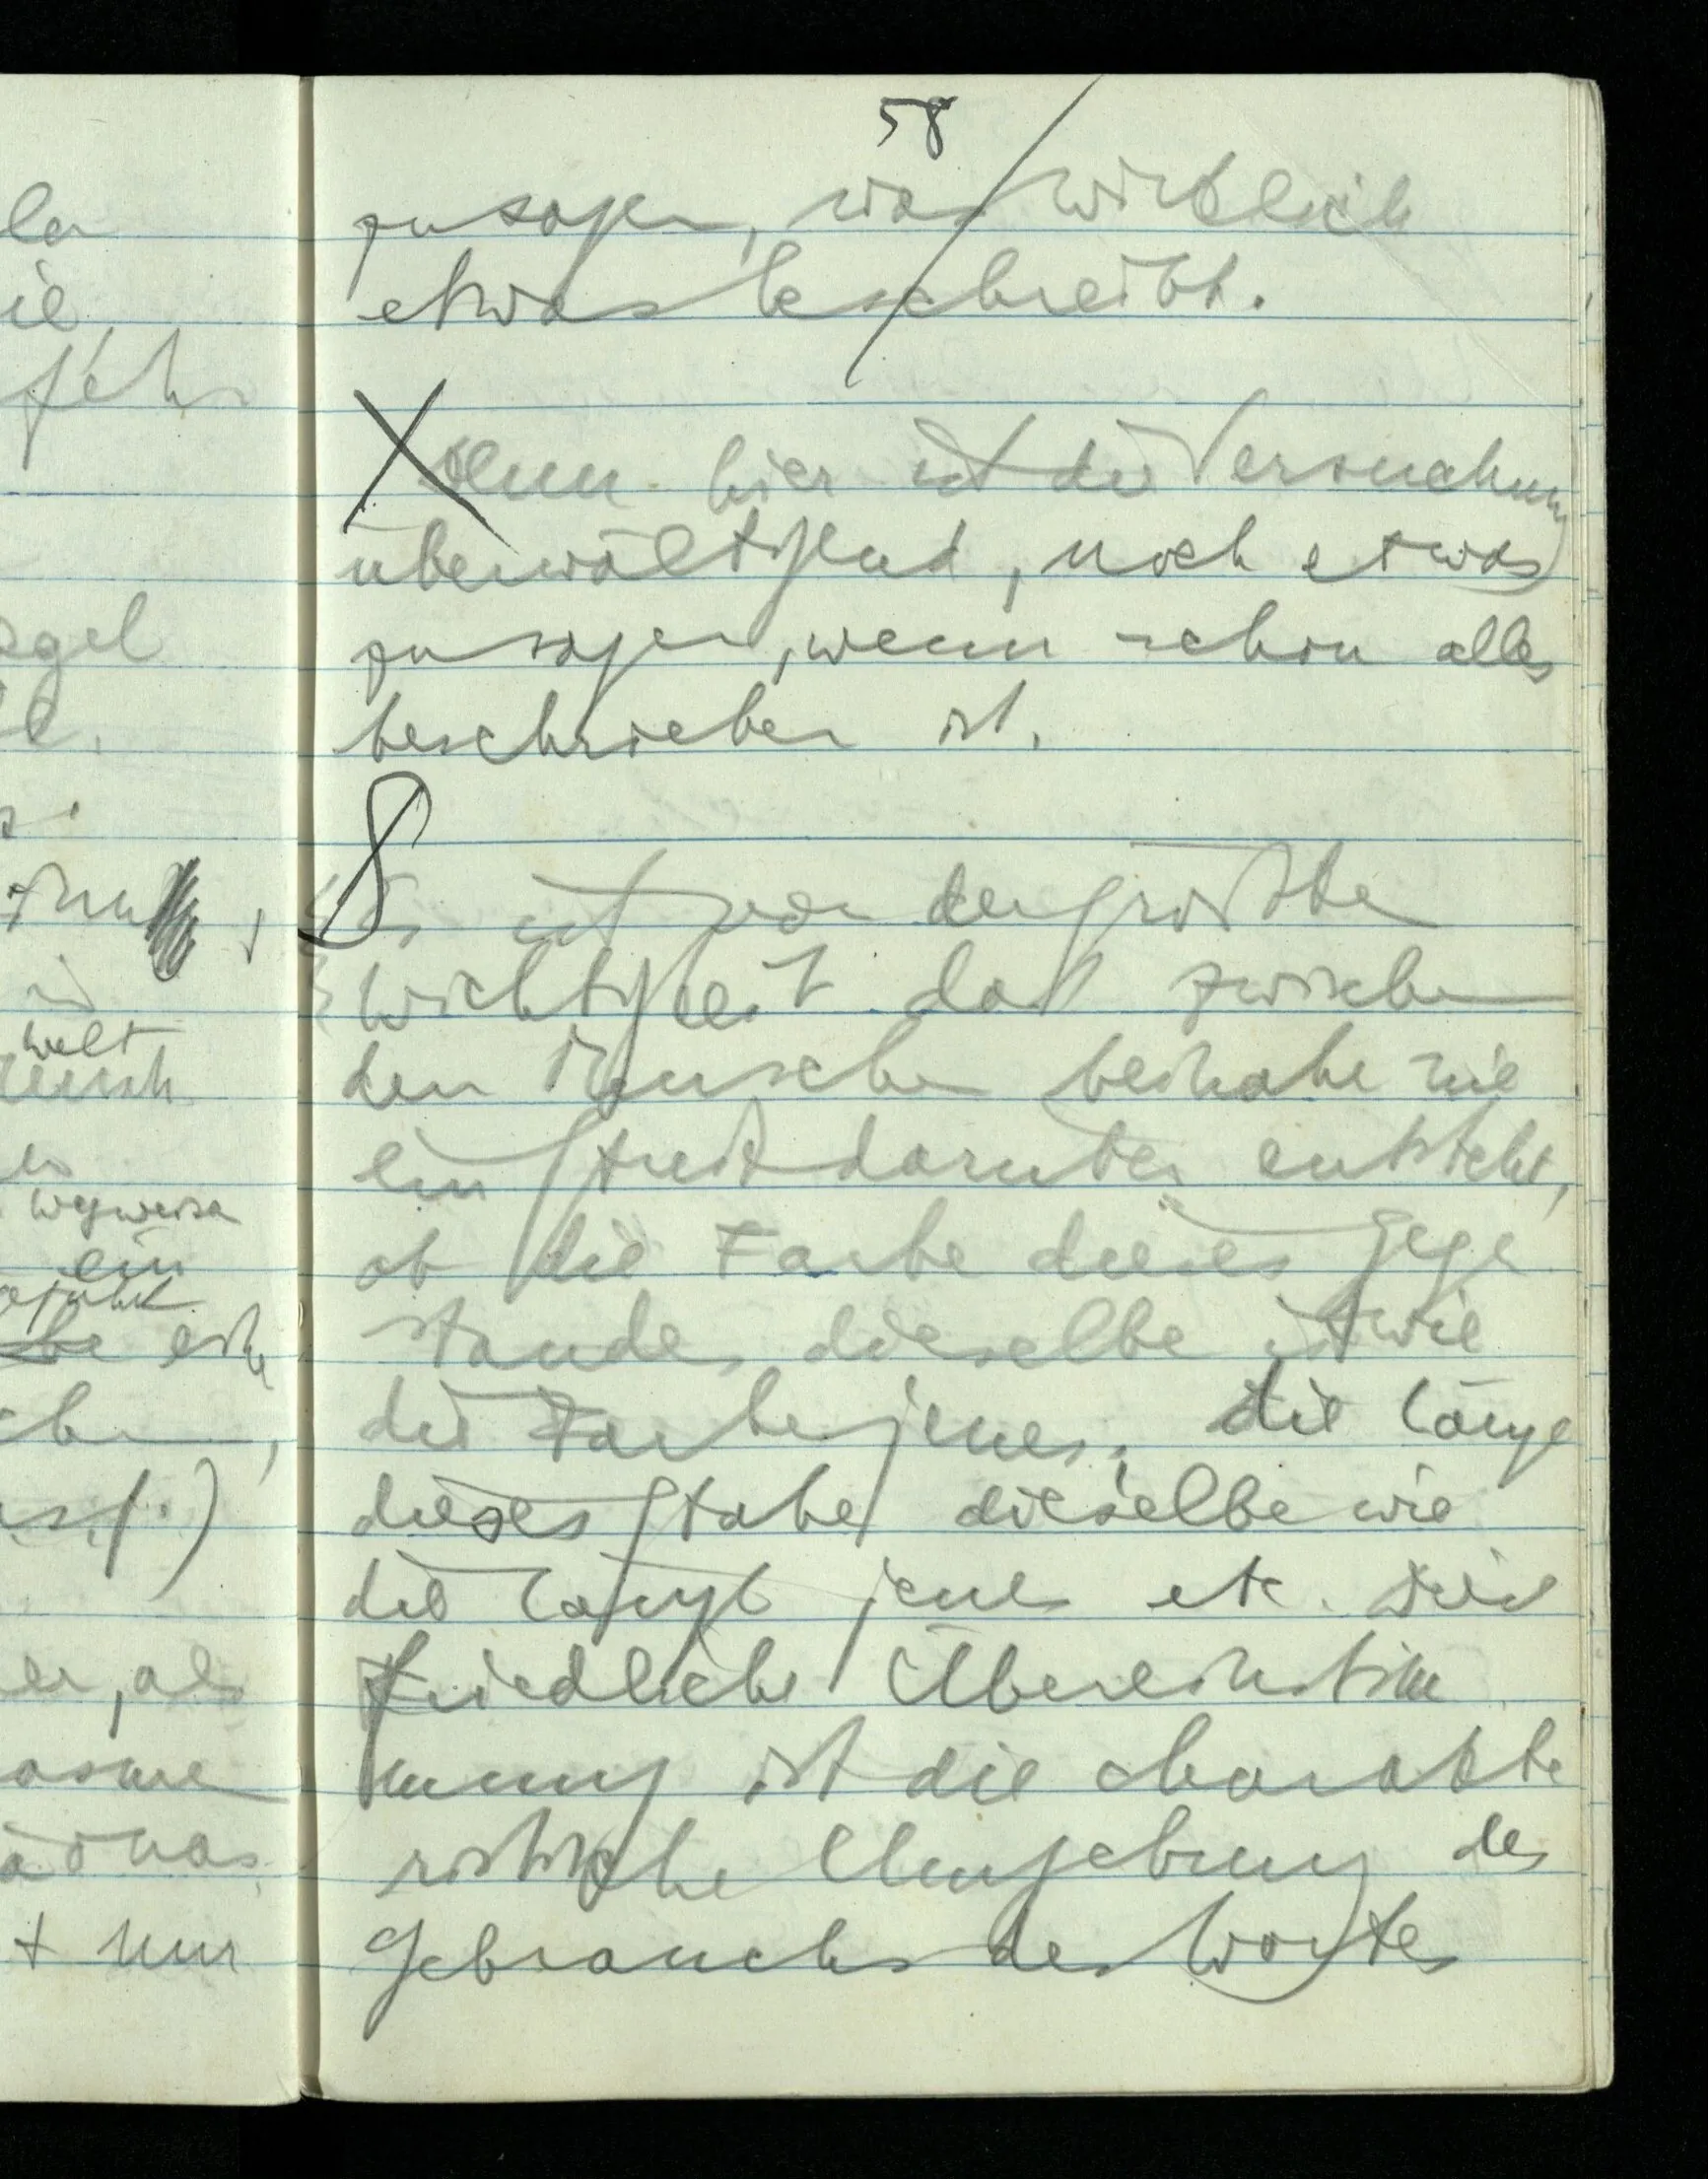 58
zu sagen, was wirklich
etwas beschreibt.
Denn hier ist die Versuchung
überwältigend, noch etwas
zu sagen, wenn schon alles
beschrieben ist.
Es ist von der größten
Wichtigkeit daß zwischen
den Menschen beinahe nie
ein Streit darüber entsteht,
ob die Farbe dieses Gegen
standes dieselbe ist wie
die Farbe jenes; die Länge
dieses Stabes dieselbe wie
die Länge jenes etc. Diese
friedliche Übereinstim
mung ist die charakte
ristische Umgebung des
Gebrauchs des Wortes
la
ie,
sehr
egel
welt
Mensch
Wegweiser
ein
u.s.f.)
er, als
t nur